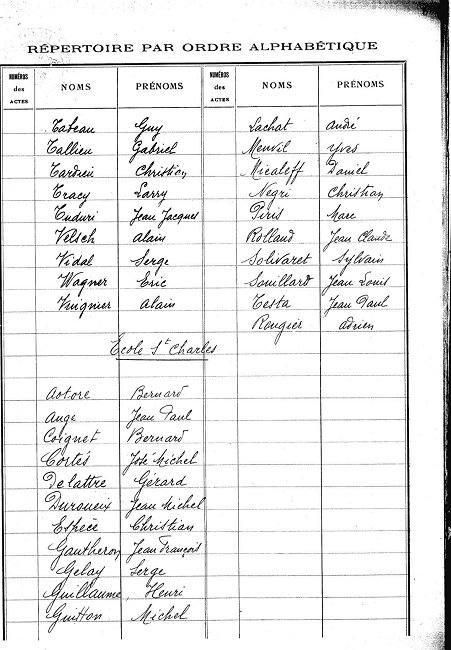 RÉPERTOIRE PAR ORDRE ALPHABÉTIQUE
NUMÉROS des ACTES NOMS PRÉNOMS NUMÉROS des ACTES NOMS PRÉNOMS
Tadeau Guy
Tallieu Gabriel
Tardieu Christian
Tracy Larry
Tuduri Jean Jacques
Velsch Alain
Vidal Serge
Wagner Eric
Vuignier Alain
Lachat André
Menvil Yves
Micaleff Daniel
Negri Christian
Piris Marc
Rolland Jean Claude
Solivaret Sylvain
Souillard Jean Louis
Testa Jean Paul
Rougier Adrien
École St Charles
Actore Bernard
Ange Jean Paul
Coignet Bernard
Cortés José Michel
Delattre Gérard
Duroueix Jean Michel
Espèce Christian
Gautheron Jean François
Gelay Serge
Guillaume, Henri
Guitton Michel